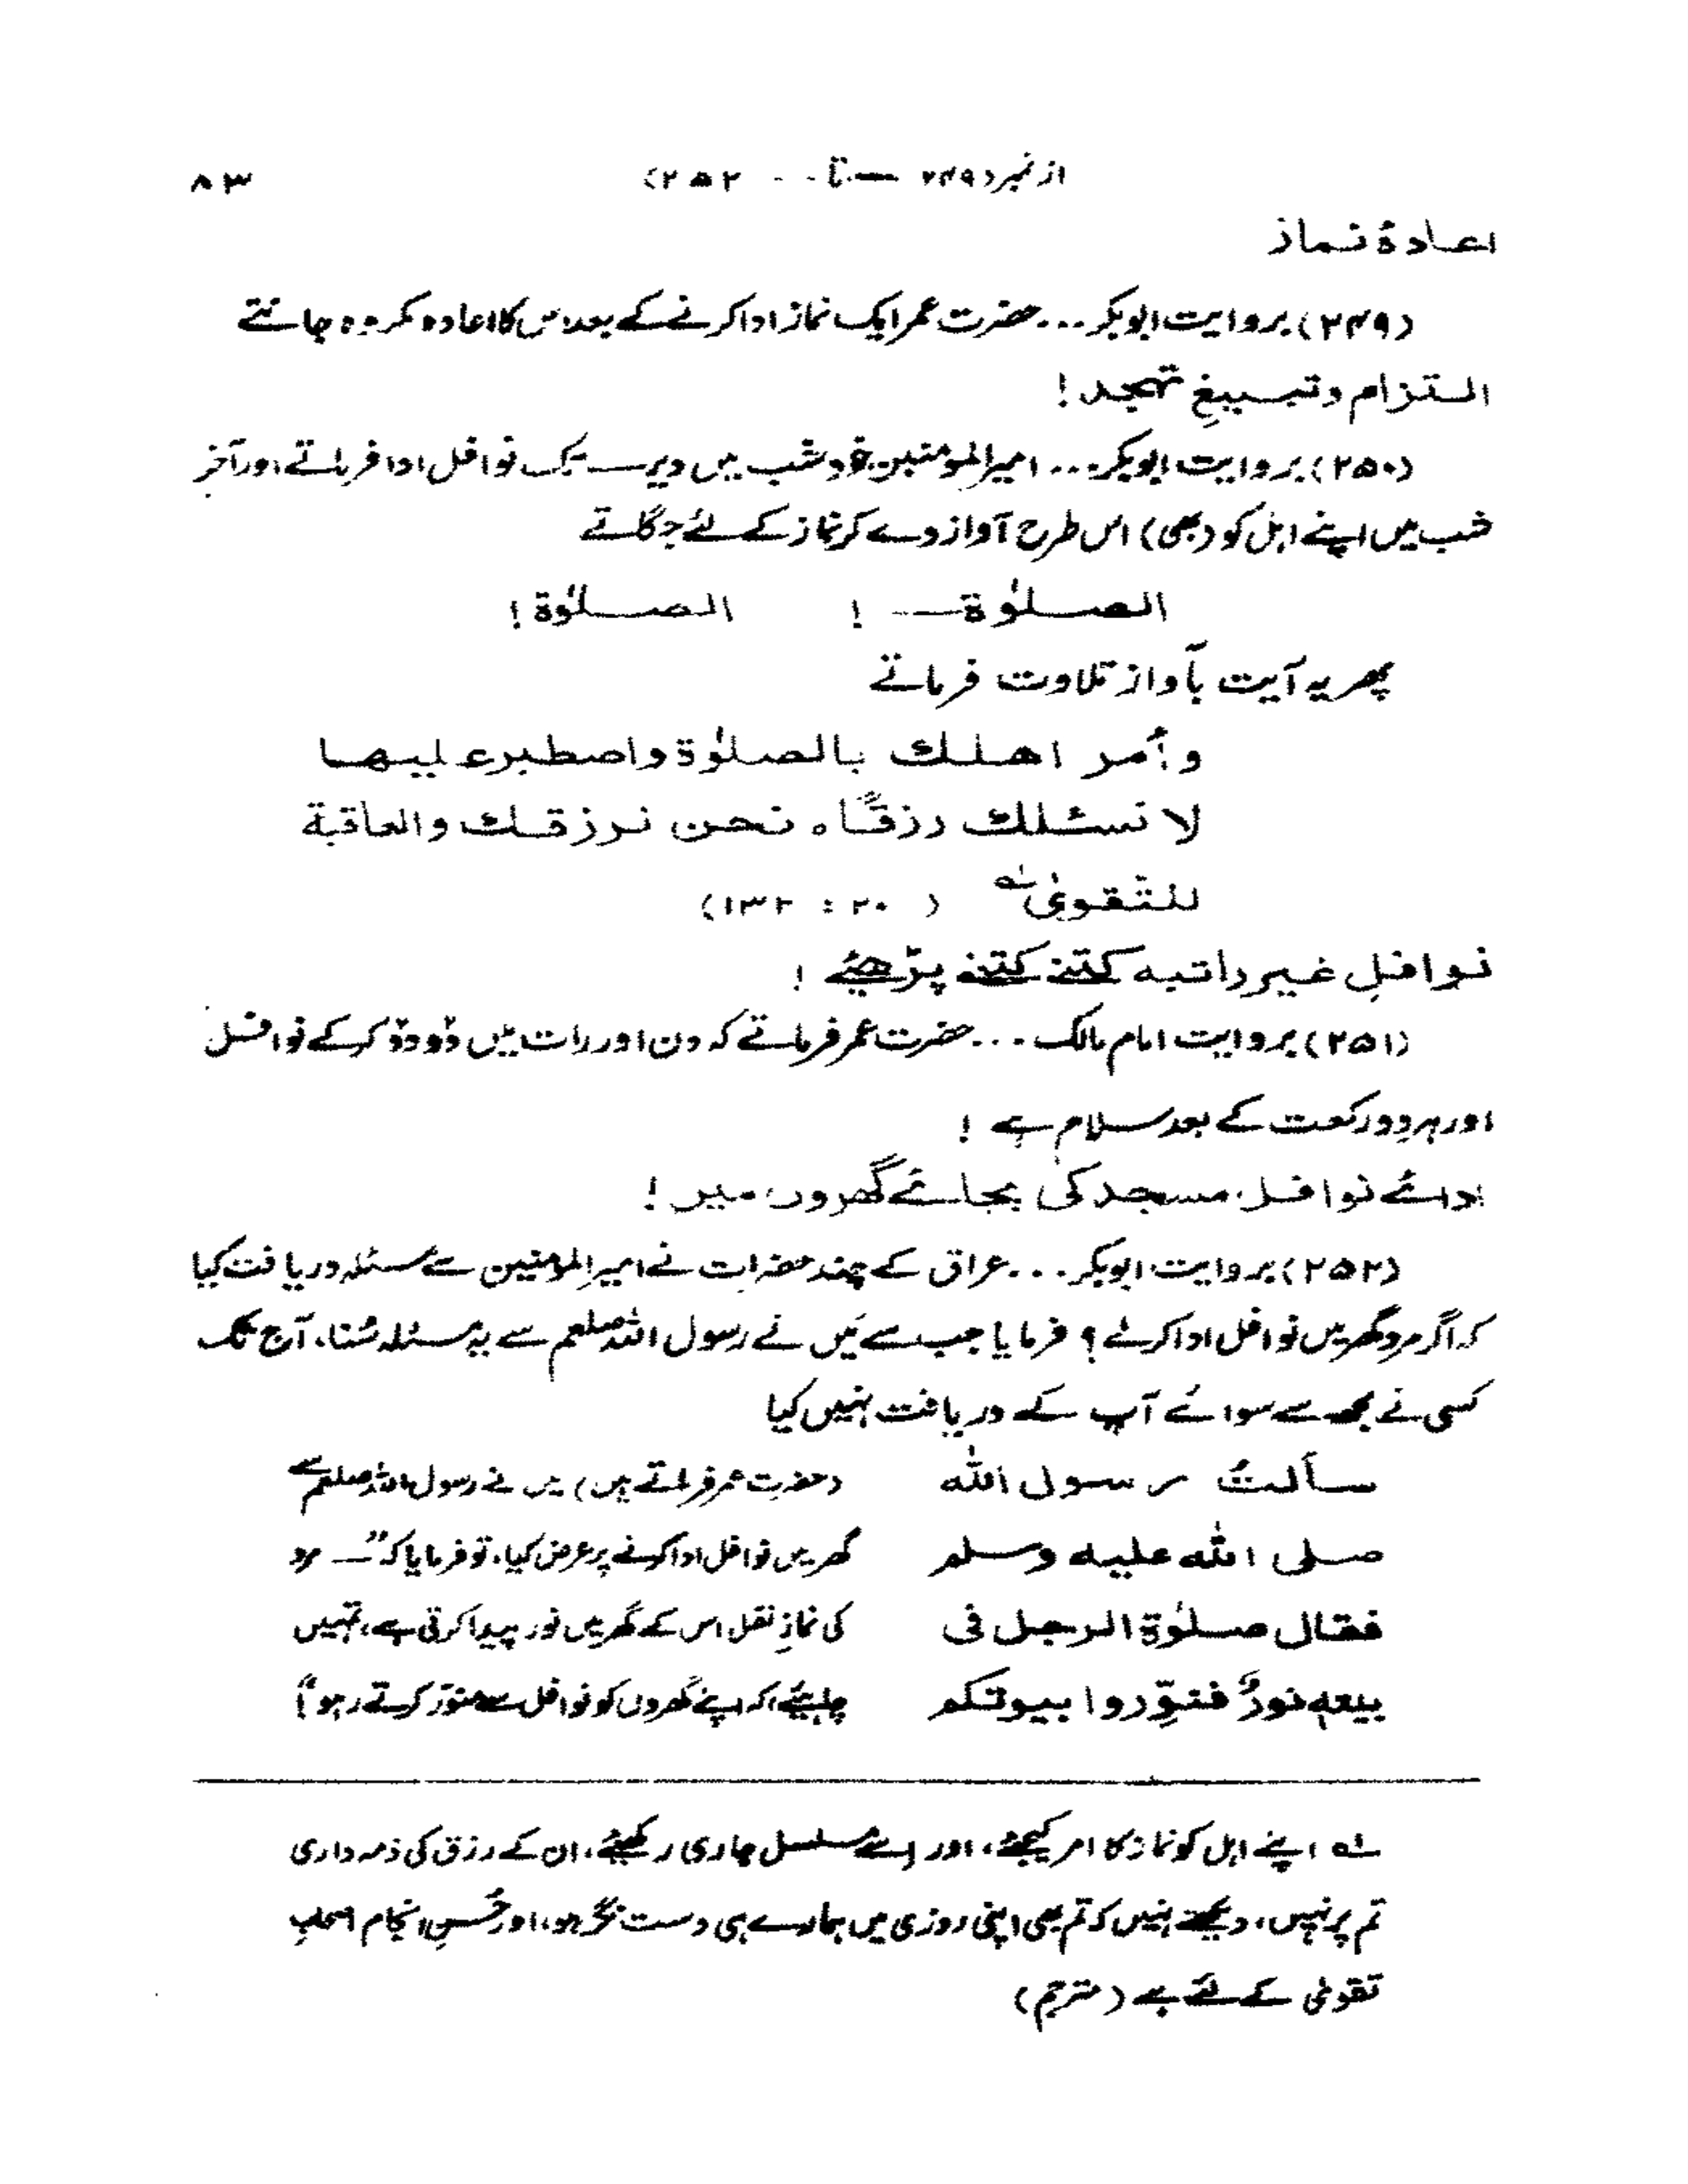 از نمبر (۲۴۹ — تا - - ۲۵۲) ۸۳
اعادۂ نماز
(۲۴۹) بروایت ابوبکر ... حضرت عمر ایک نماز ادا کرنے کے بعد اس کا اعادہ مکروہ جانتے
التزام وتبلیغِ تہجد !
(۲۵۰) بروایت ابوبکر ... امیرالمومنین خود شب میں دیر تک نوافل ادا فرماتے اور آخر
شب میں اپنے اہل کو (بھی) اس طرح آواز دے کر نماز کے لئے جگاتے
الصلوٰۃ — ! الصلوٰۃ !
پھر یہ آیت بآواز تلاوت فرماتے
وأمر اهلك بالصلوٰة واصطبر عليها
لا نسئلك رزقًا ہ نحن نرزقك والعاقبة
للتقوىٰ ؎۱ ( ۲۰ : ۱۳۲)
نوافلِ غیر راتبہ کتنے کتنے پڑھیئے !
(۲۵۱) بروایت امام مالک ... حضرت عمر فرماتے کہ دن اور رات میں دُو دُو کر کے نوافل
اور ہر دو رکعت کے بعد سلام ہے !
ادائے نوافل مسجد کی بجائے گھروں میں !
(۲۵۲) بروایت ابوبکر ... عراق کے چند حضرات نے امیرالمومنین سے مسئلہ دریافت کیا
کہ اگر مرد گھر میں نوافل ادا کرلے ؟ فرمایا جب سے مَیں نے رسول اللہ صلعم سے یہ مسئلہ سُنا، آج تک
کسی نے مجھ سے سوائے آپ کے دریافت نہیں کیا
سألتُ رسول الله (حضرت عمر فرماتے ہیں) میں نے رسول اللہ صلعم سے
صلى الله عليه وسلم گھر میں نوافل ادا کرنے پر عرض کیا، تو فرمایا کہ "— مرد
فقال صلوٰة الرجل فى کی نمازِ نفل اس کے گھر میں نور پیدا کرتی ہے، تمہیں
بيته نورٌ فنوِّروا بيوتكم چاہیئے، کہ اپنے گھروں کو نوافل سے منوّر کرتے رہو"!
؎۱ اپنے اہل کو نماز کا امر کیجئے، اور اسے مسلسل جاری رکھیئے، ان کے رزق کی ذمہ داری
تم پر نہیں، دیکھتے نہیں کہ تم بھی اپنی روزی میں ہمارے ہی دست نگر ہو، اور حُسنِ انجام اصحابِ
تقوےٰ کے لئے ہے (مترجم)